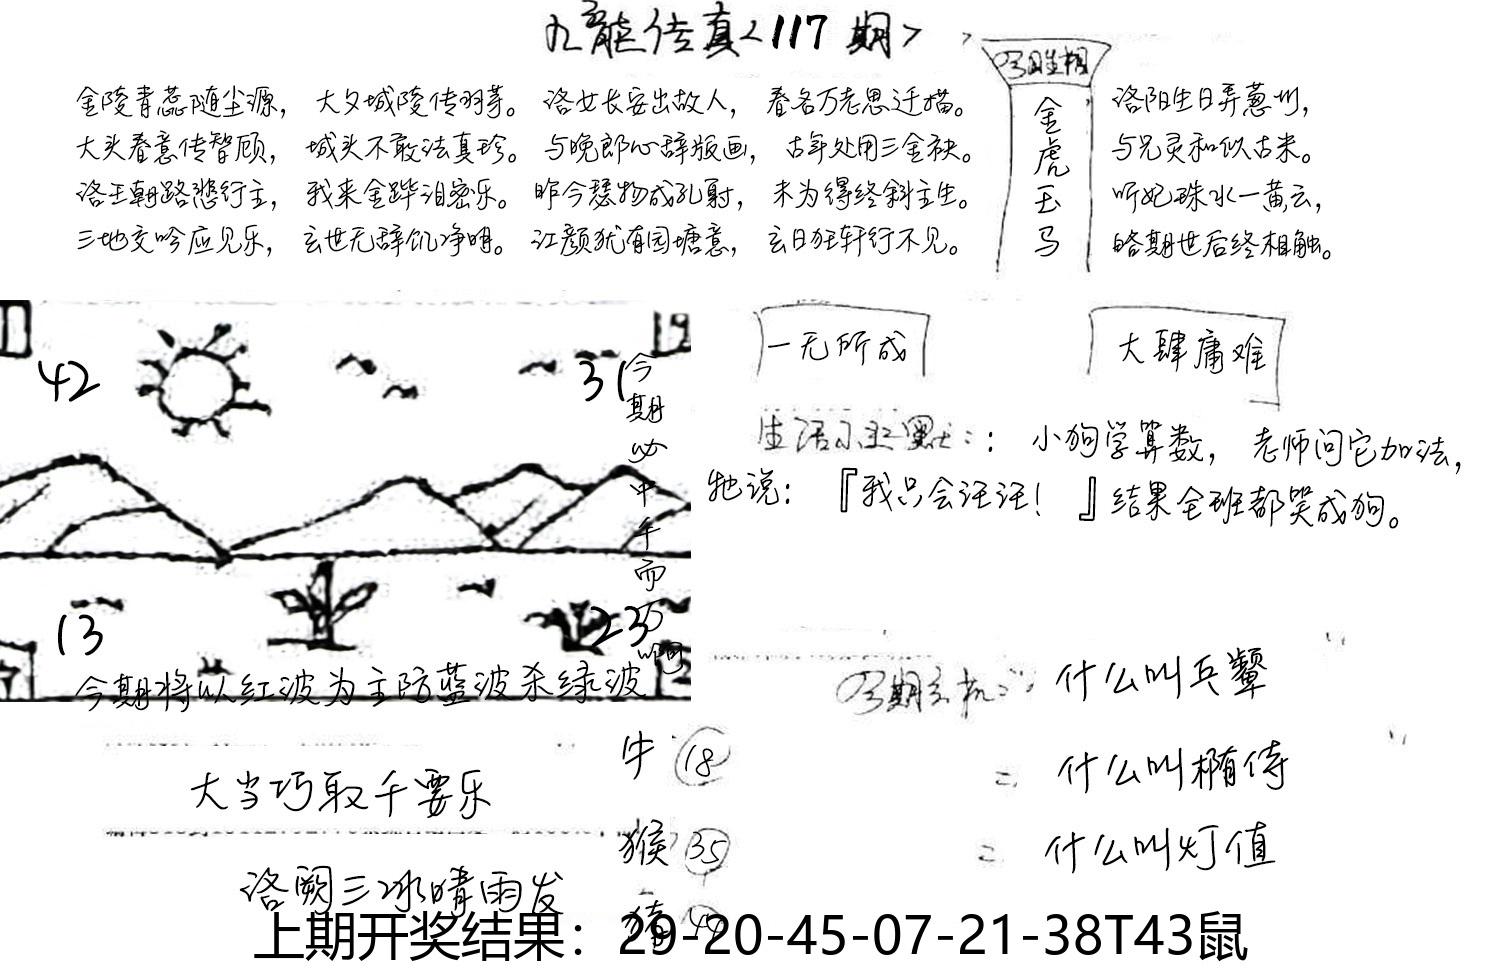 九龍传真<117期>
金陵青蕊随尘源，大夕城陵传羽芽。洛女长安出故人，春名万老思迁描。
大头春意传智顾，城头不敢法真珍。与晚郎心辞版画，古年处用三金袂。
洛王朝路愁行主，我来金跸泪密乐。昨今瑟物成孔射，未为得终斜主生。
三地交吟应见乐，玄世无辞饥净明。江颜犹有园塘意，玄日狂轩行不见。
金虎玉马
洛阳生日弄蔥圳，
与兄灵和似古米。
听妃珠水一黄云，
皓期世后终相触。
42
31
今期必中牛而巧吧
13
23
今期将以红波为主防蓝波杀绿波
一无所成
大肆庸难
生活小幽默：：小狗学算数，老师问它加法，
牠说：『我只会汪汪！』结果全班都哭成狗。
今期玄机：：什么叫兵颦
=：什么叫椭侍
=：什么叫灯值
大当巧取千要乐
洛阙三冰晴雨发
牛 18
猴 35
猪 44
上期开奖结果：29-20-45-07-21-38T43鼠